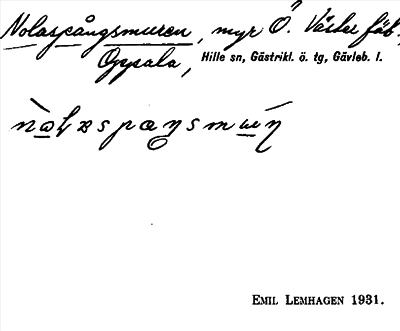 Nolaspångsmuren, myr Ö. Väster fäb.
Oppala, Hille sn, Gästrikl. ö. tg, Gävleb. l.
EMIL LEMHAGEN 1931.